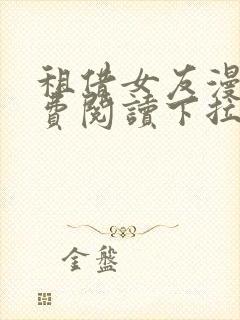 租借女友漫
費閱讀下拉
金盤